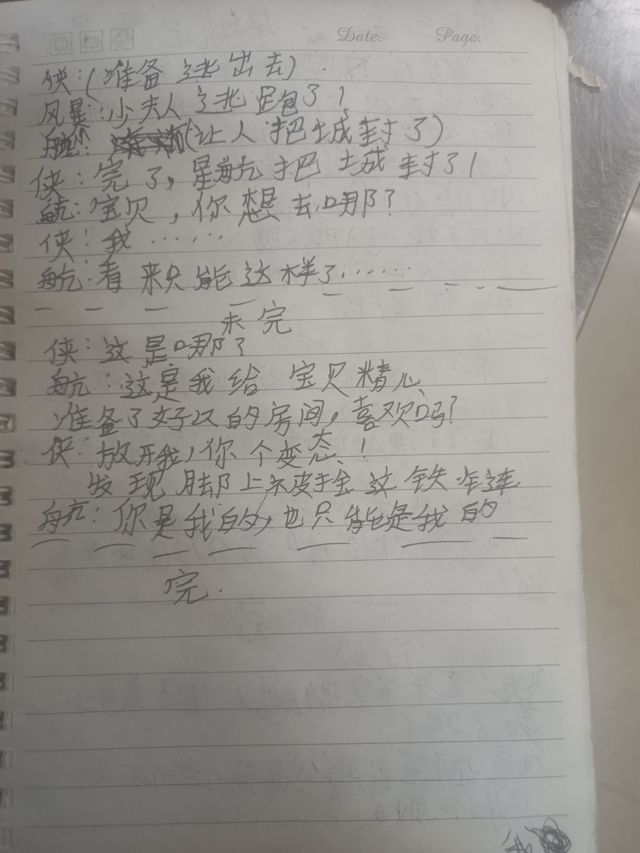 Date. Page.
侠:(准备逃出去)
风星:小夫人逃跑了!
航:(让人把城封了)
侠:完了,星航把城封了!
航:宝贝,你想去哪?
侠:我……
航:看来只能这样了……
未完
侠:这是哪?
航:这是我给宝贝精心
准备了好久的房间,喜欢吗?
侠:放开我,你个变态!
发现脚上被拴这铁链
航:你是我的,也只能是我的
完.